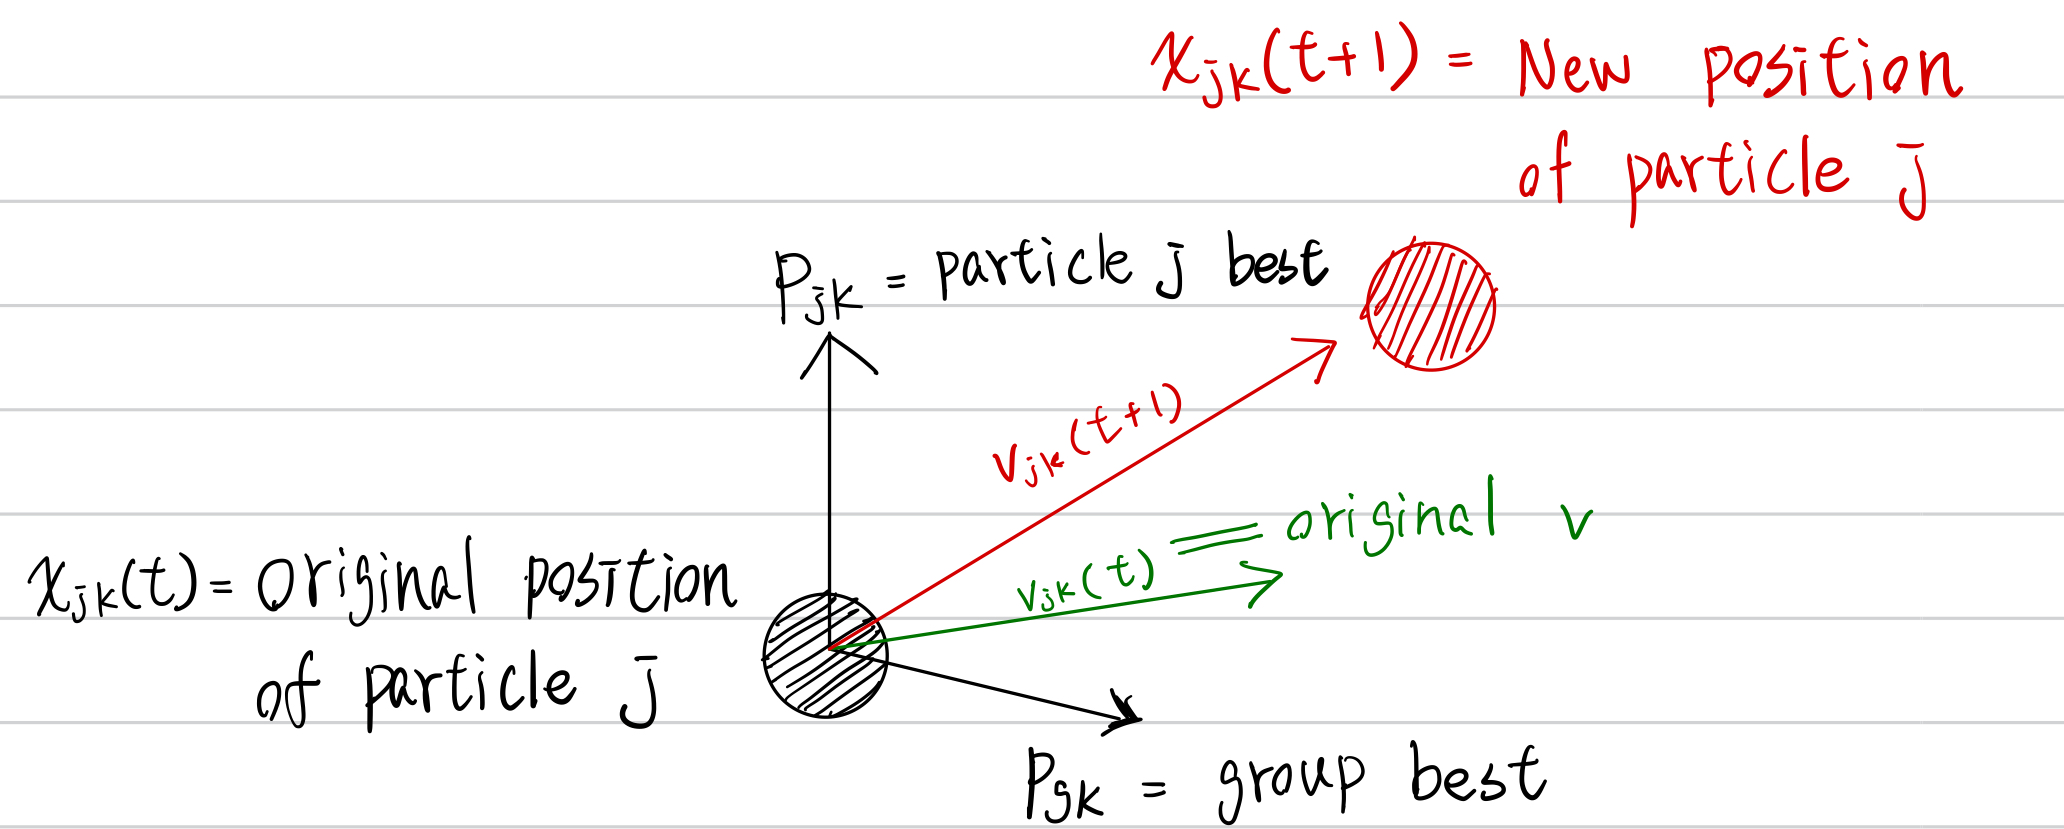 x_jk(t+1) = New position
of particle j
P_jk = particle j best
v_jk(t+1)
v_jk(t) = original v
x_jk(t) = original position
of particle j
P_gk = group best